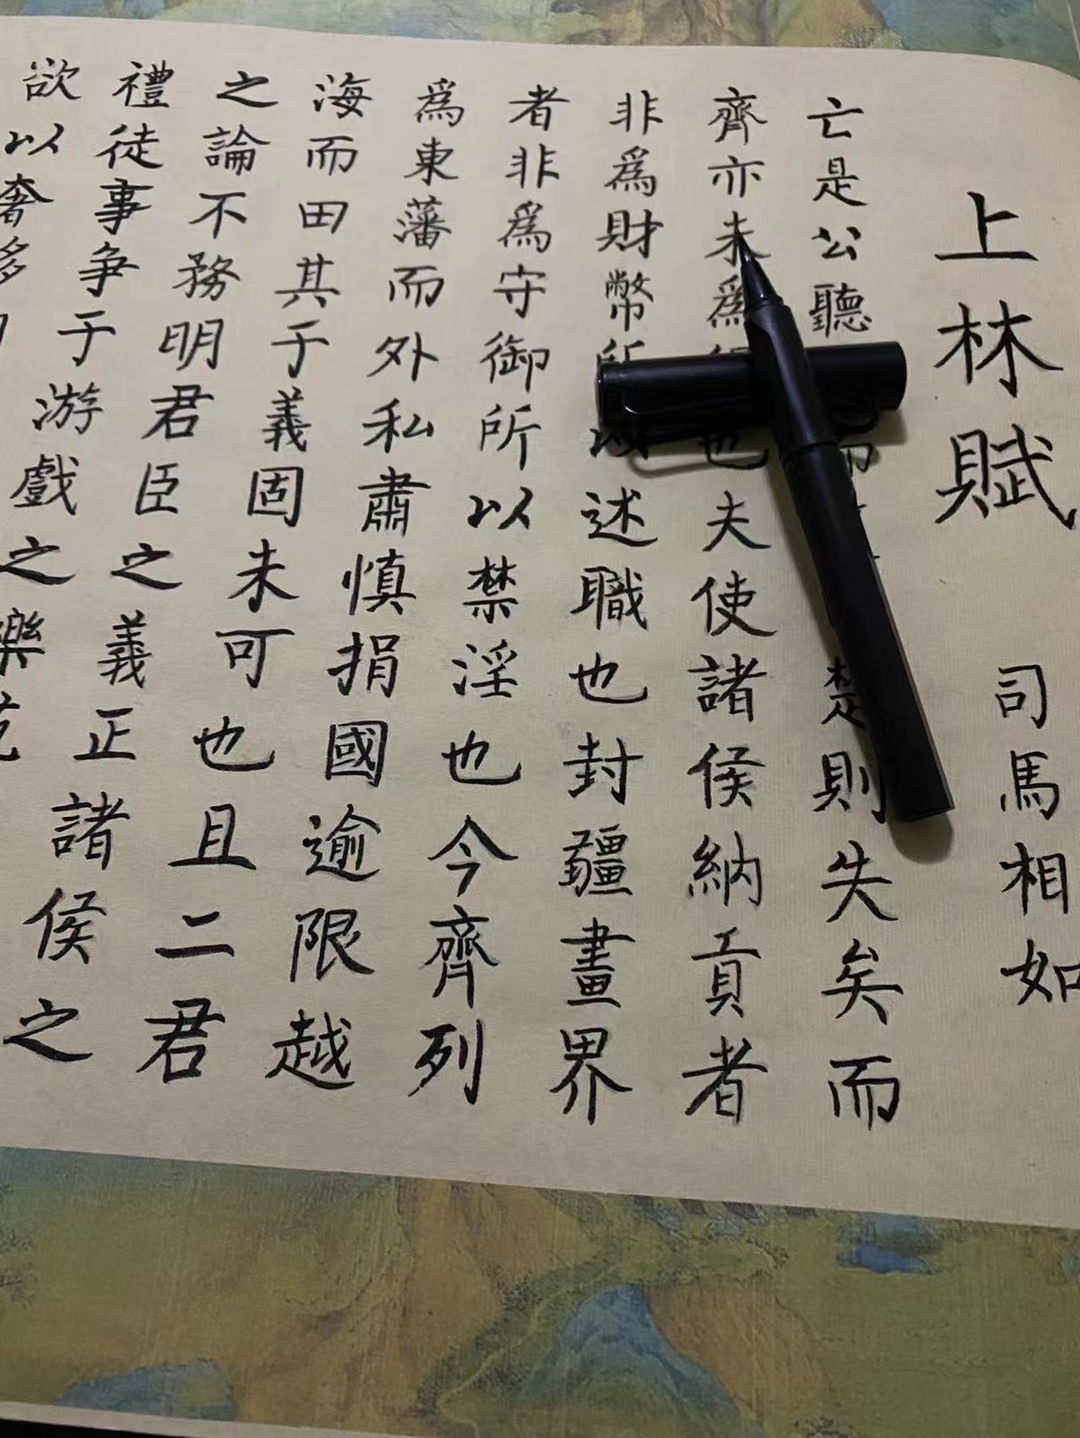 上林賦
司馬相如
亡是公聽 楚則失矣而
齊亦未爲 也夫使諸侯納貢者
非爲財幣所以述職也封疆畫界
者非爲守御所以禁淫也今齊列
爲東藩而外私肅慎捐國逾限越
海而田其于義固未可也且二君
之論不務明君臣之義正諸侯之
禮徒事争于游戲之樂
欲以奢侈